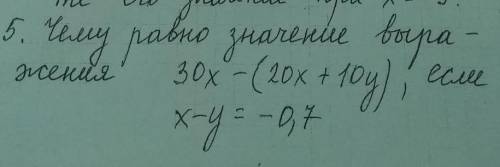 5. Чему равно значение выра-
жения 30x-(20x+10y), если
x-y = -0,7